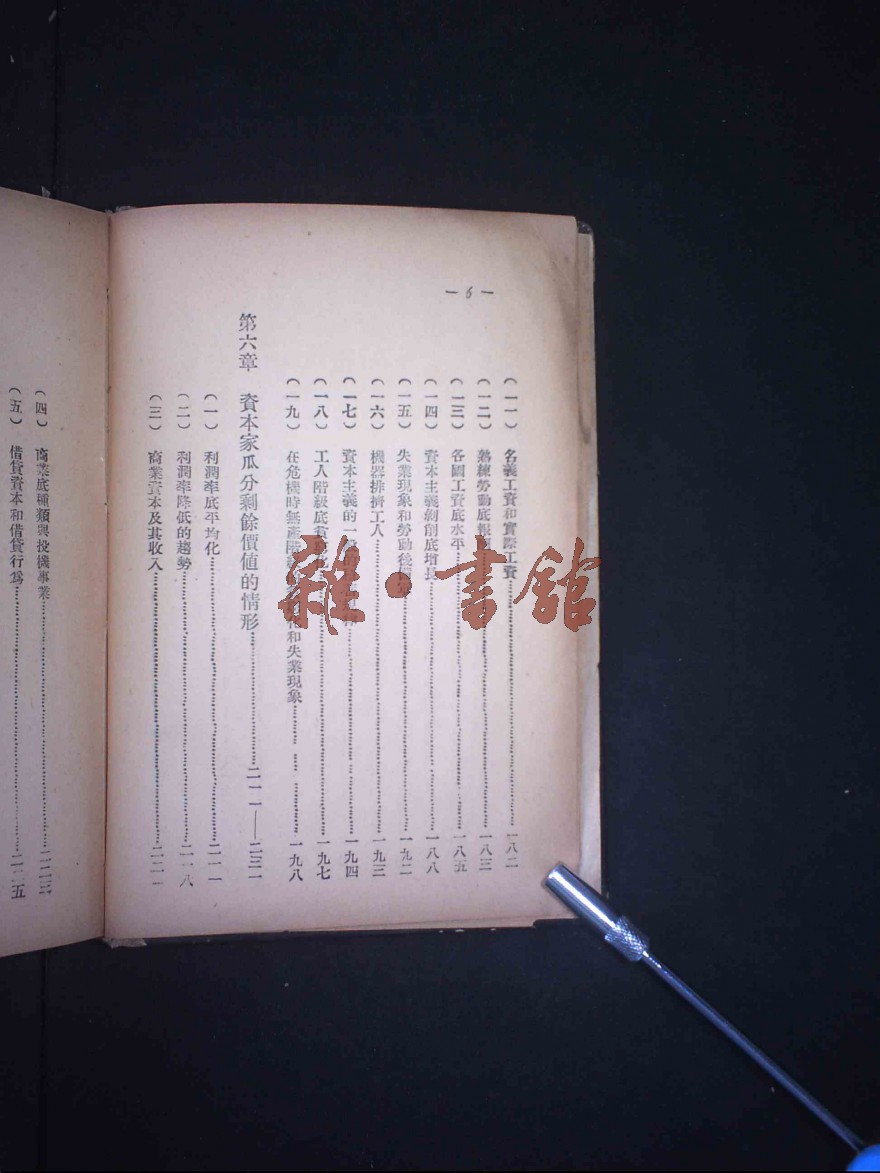 — 6 —
(一一) 名義工資和實際工資……一八二
(一二) 熟練勞動底……一八三
(一三) 各國工資底水平……一八五
(一四) 資本主義剝削底增長……一八八
(一五) 失業現象和勞動後……一九二
(一六) 機器排擠工人……一九三
(一七) 資本主義的一……一九四
(一八) 工人階級底……一九七
(一九) 在危機時無產階……化和失業現象……一九八
第六章 資本家瓜分剩餘價值的情形……二一一——二三一
(一) 利潤率底平均化……二一一
(二) 利潤率降低的趨勢……二一八
(三) 商業資本及其收入……二二一
(四) 商業底種類與投機事業……二二三
(五) 借貸資本和借貸行爲……二二五
雜·書館